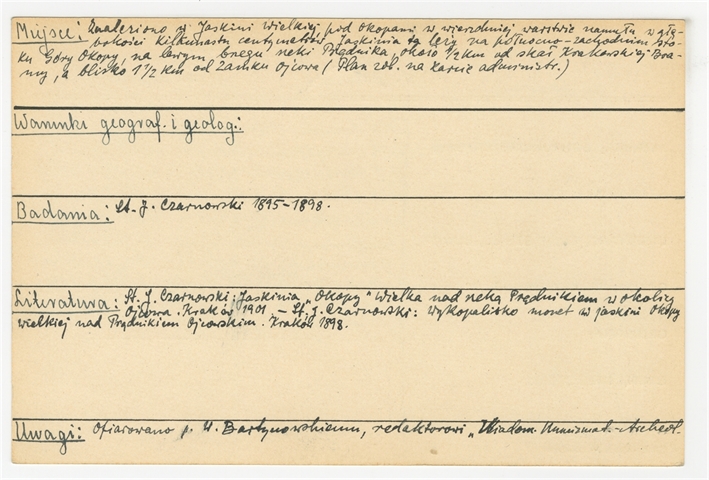 Miejsce: Znaleziono w Jaskini Wielkiej pod Okopami w wierzchniej warstwie namułu w głę-
bokości kilkunastu centymetrów. Jaskinia ta leży na północno-zachodnim sto-
ku Góry Okopy, na lewym brzegu rzeki Prądnika, około ½ km od skał Krakowskiej Bra-
my, a blisko 1½ km od Zamku Ojcowa (Plan zob. na karcie administr.)
Warunki geograf. i geolog.:
Badania: St. J. Czarnowski 1895-1898.
Literatura: St. J. Czarnowski: Jaskinia "Okopy" Wielka nad rzeką Prądnikiem w okolicy
Ojcowa. Kraków 1901. - St. J. Czarnowski: Wykopalisko monet w jaskini Okopy
wielkiej nad Prądnikiem Ojcowskim. Kraków 1898.
Uwagi: Ofiarowano p. W. Bartynowskiemu, redaktorowi "Wiadom. Numizmat.-Archeol.